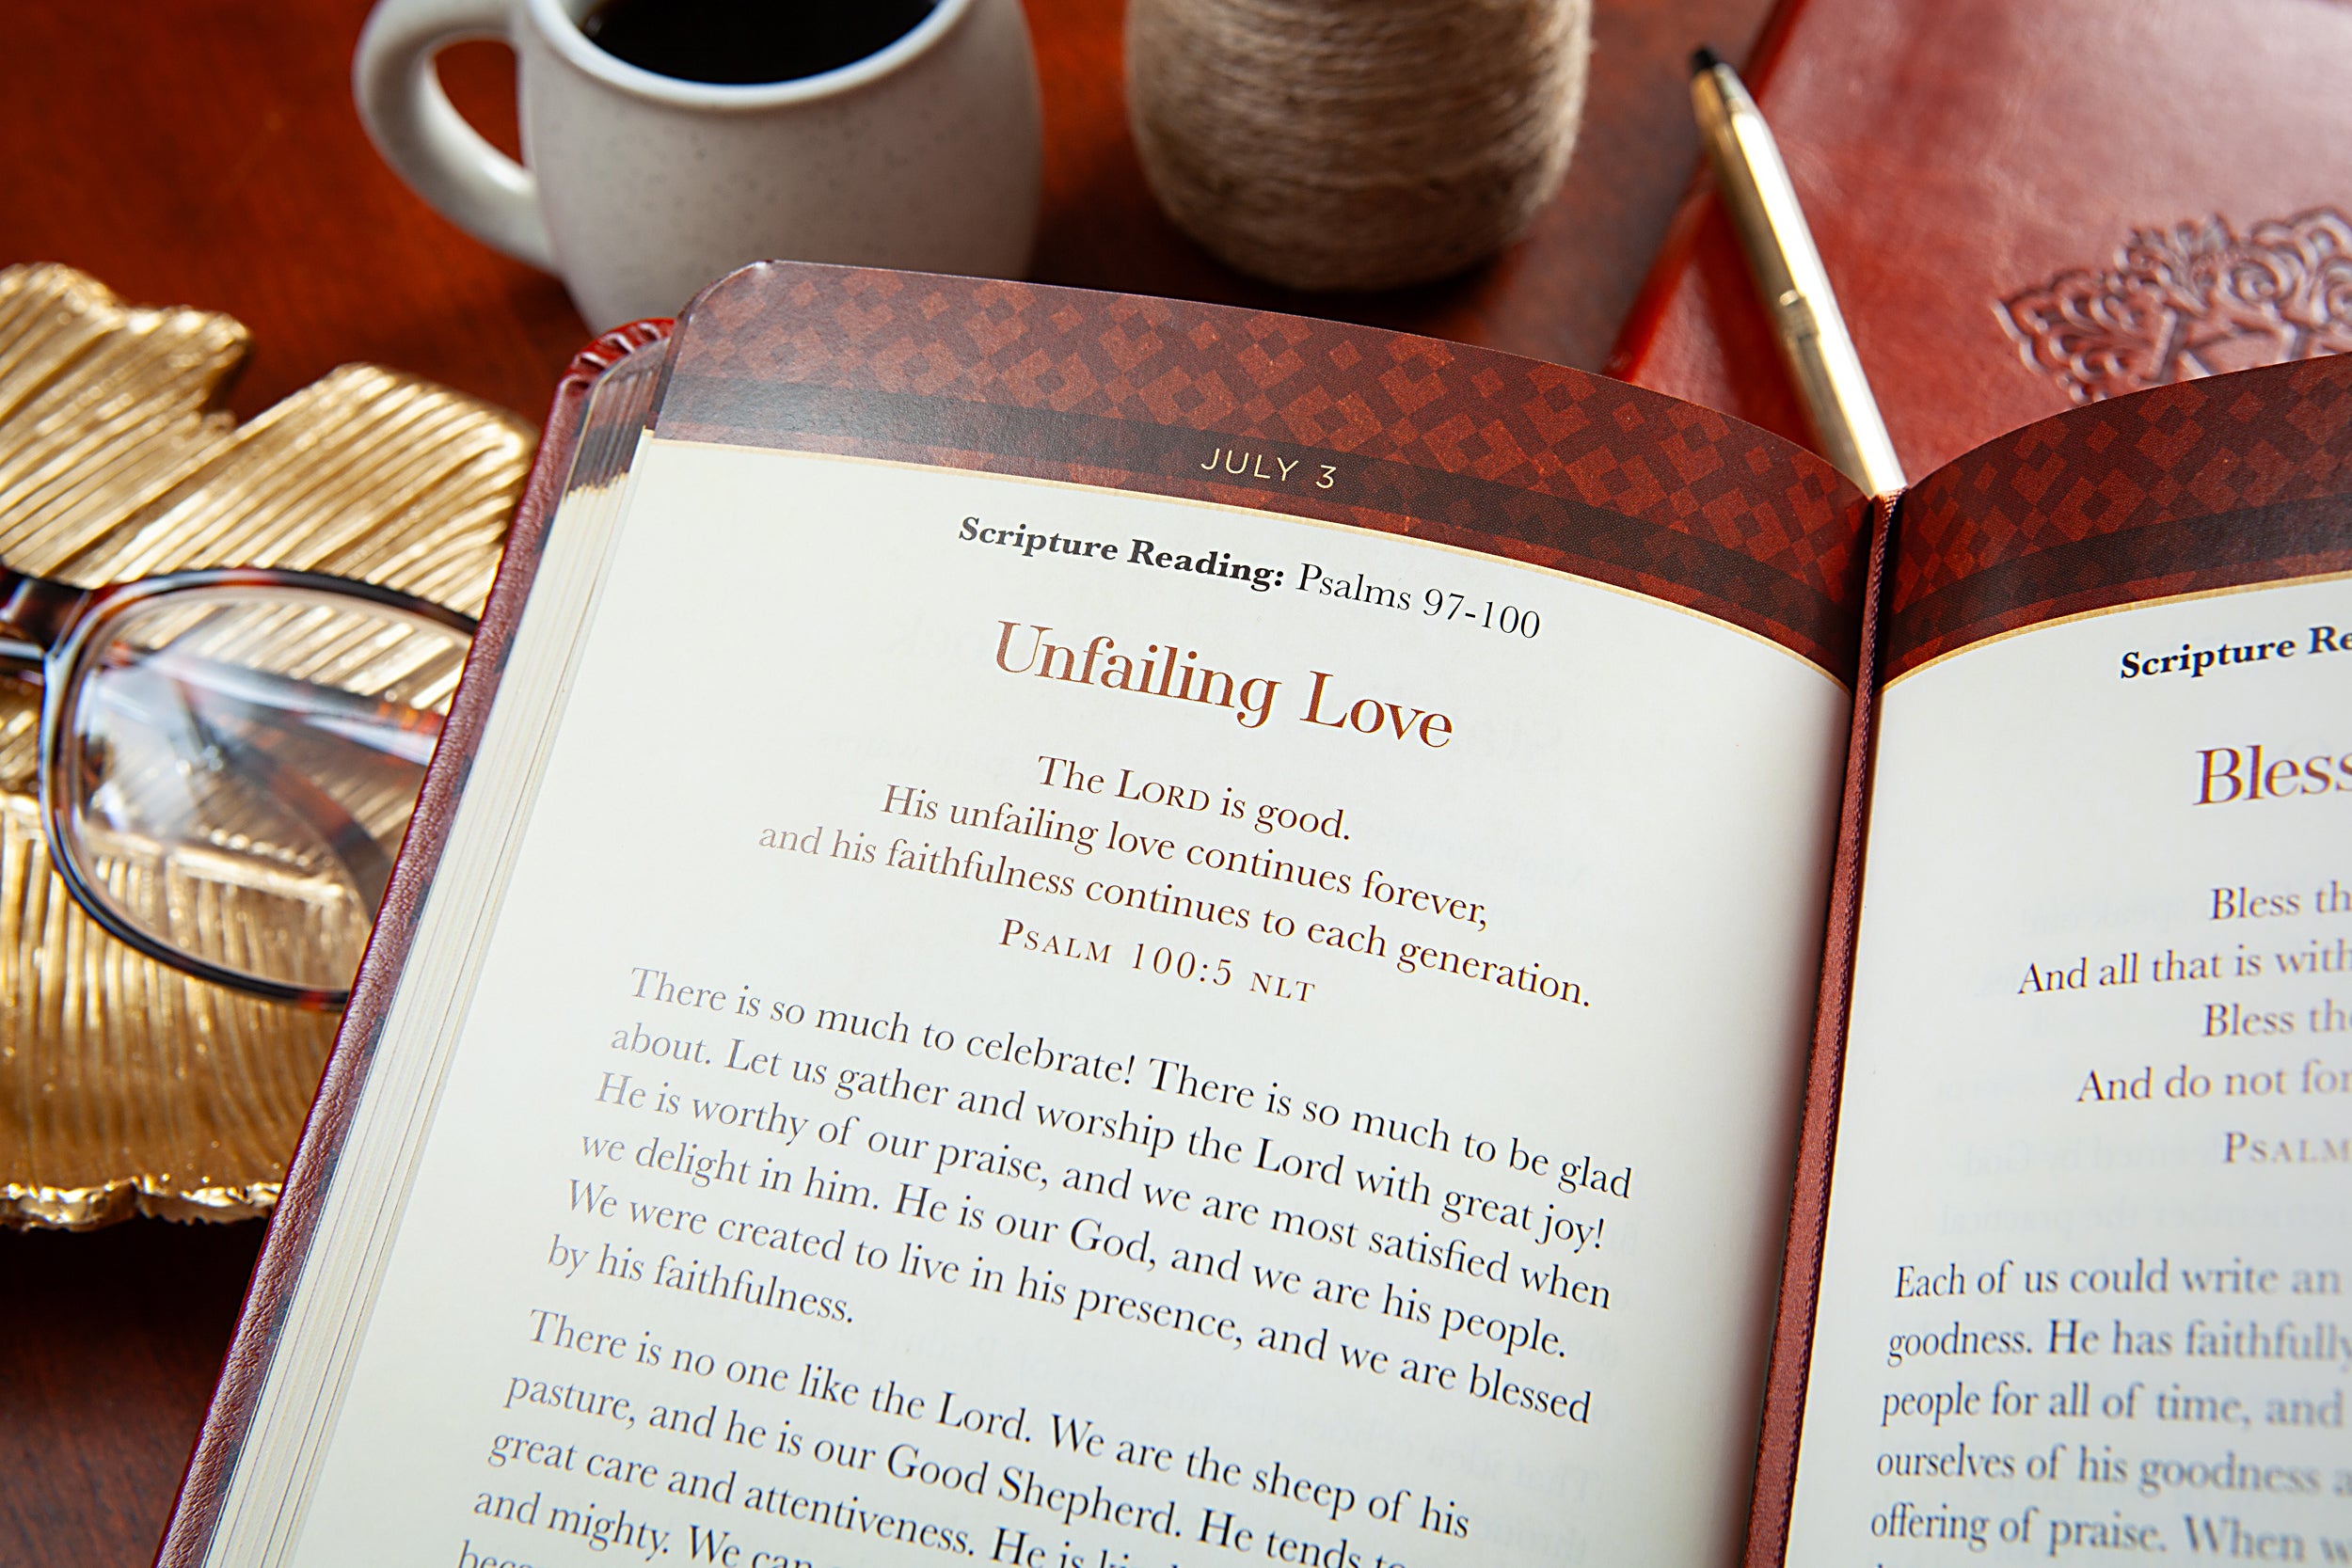 JULY 3
Scripture Reading: Psalms 97-100
Unfailing Love
The LORD is good.
His unfailing love continues forever,
and his faithfulness continues to each generation.
PSALM 100:5 NLT
There is so much to celebrate! There is so much to be glad
about. Let us gather and worship the Lord with great joy!
He is worthy of our praise, and we are most satisfied when
we delight in him. He is our God, and we are his people.
We were created to live in his presence, and we are blessed
by his faithfulness.
There is no one like the Lord. We are the sheep of his
pasture, and he is our Good Shepherd. He tends to
great care and attentiveness. He is
and mighty. We can
Scripture
Bless
Bless
And all that is
Bless
And do not
PSALM
Each of us could write an
goodness. He has faithfully
people for all of time, and
ourselves of his goodness
offering of praise. When